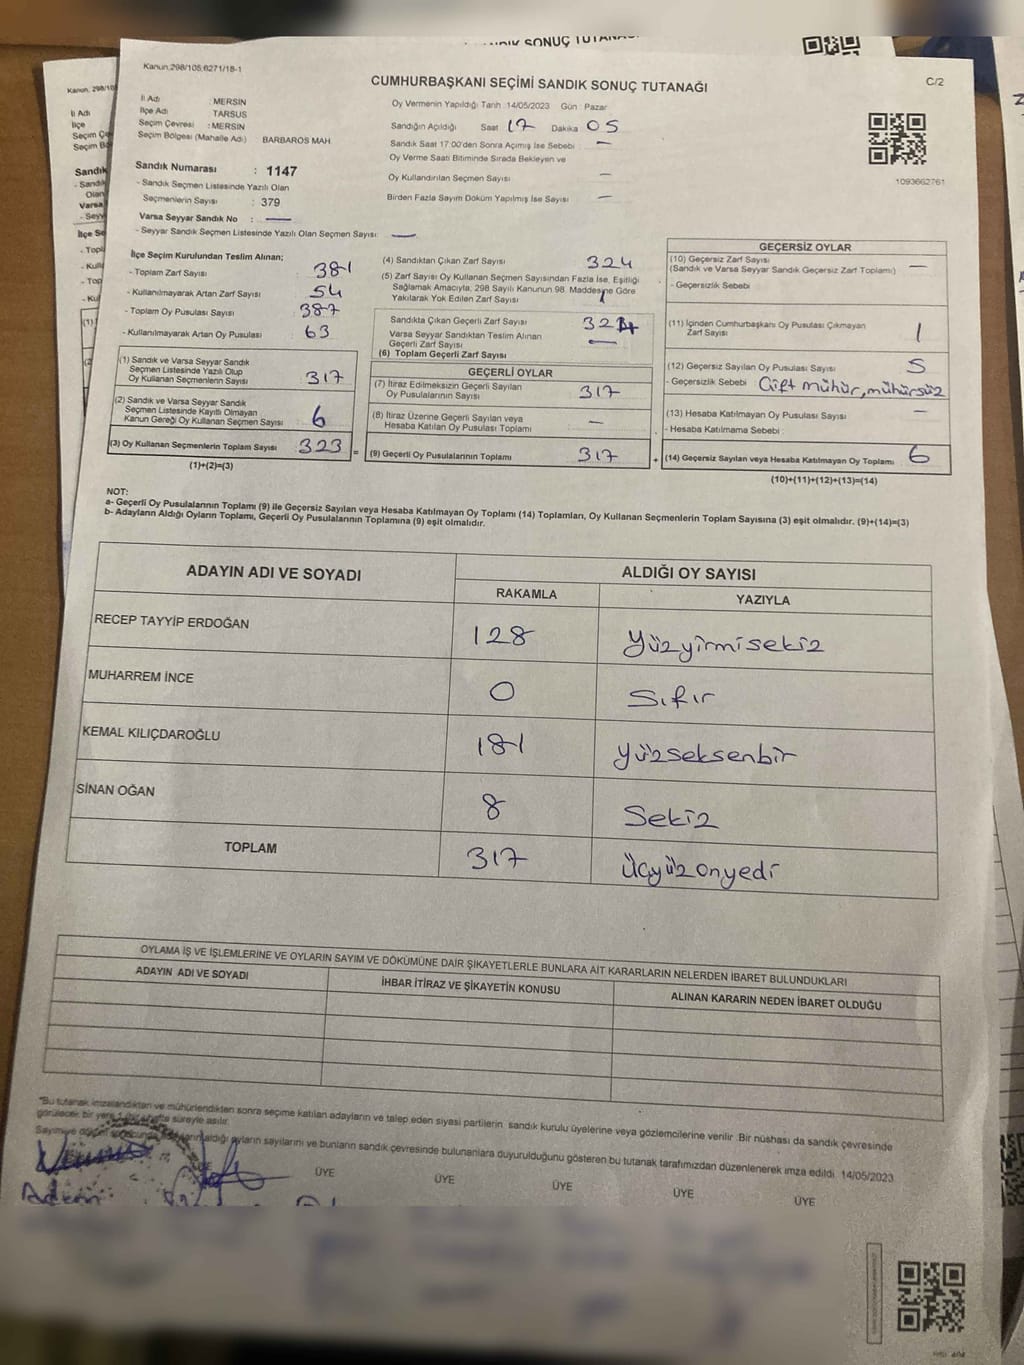 SONUÇ TUTANA
Kanun:298/105,6271/18-1
CUMHURBAŞKANI SEÇİMİ SANDIK SONUÇ TUTANAĞI
C/2
İl Adı : MERSİN
İlçe Adı TARSUS
Seçim Çevresi : MERSİN
Seçim Bölgesi (Mahalle Adı) BARBAROS MAH.
Sandık Numarası : 1147
- Sandık Seçmen Listesinde Yazılı Olan
Seçmenlerin Sayısı : 379
Varsa Seyyar Sandık No : —
- Seyyar Sandık Seçmen Listesinde Yazılı Olan Seçmen Sayısı: —
Oy Vermenin Yapıldığı Tarih :14/05/2023 Gün : Pazar
Sandığın Açıldığı Saat 17 Dakika 05
Sandık Saat 17:00'den Sonra Açılmış İse Sebebi —
Oy Verme Saati Bitiminde Sırada Bekleyen ve
Oy Kullandırılan Seçmen Sayısı —
Birden Fazla Sayım Döküm Yapılmış İse Sayısı —
1093662761
İlçe Seçim Kurulundan Teslim Alınan;
- Toplam Zarf Sayısı 381
- Kullanılmayarak Artan Zarf Sayısı 54
- Toplam Oy Pusulası Sayısı 387
- Kullanılmayarak Artan Oy Pusulası 63
(1) Sandık ve Varsa Seyyar Sandık
Seçmen Listesinde Yazılı Olup
Oy Kullanan Seçmenlerin Sayısı 317
(2) Sandık ve Varsa Seyyar Sandık
Seçmen Listesinde Kayıtlı Olmayan
Kanun Gereği Oy Kullanan Seçmen Sayısı 6
(3) Oy Kullanan Seçmenlerin Toplam Sayısı 323
(1)+(2)=(3)
(4) Sandıktan Çıkan Zarf Sayısı 324
(5) Zarf Sayısı Oy Kullanan Seçmen Sayısından Fazla İse, Eşitliği
Sağlamak Amacıyla, 298 Sayılı Kanunun 98. Maddesine Göre
Yakılarak Yok Edilen Zarf Sayısı 1
Sandıkta Çıkan Geçerli Zarf Sayısı
Varsa Seyyar Sandıktan Teslim Alınan
Geçerli Zarf Sayısı —
(6) Toplam Geçerli Zarf Sayısı
GEÇERLİ OYLAR
(7) İtiraz Edilmeksizin Geçerli Sayılan
Oy Pusulalarının Sayısı 317
(8) İtiraz Üzerine Geçerli Sayılan veya
Hesaba Katılan Oy Pusulası Toplamı —
(9) Geçerli Oy Pusulalarının Toplamı 317
GEÇERSİZ OYLAR
(10) Geçersiz Zarf Sayısı
(Sandık ve Varsa Seyyar Sandık Geçersiz Zarf Toplamı) —
- Geçersizlik Sebebi
(11) İçinden Cumhurbaşkanı Oy Pusulası Çıkmayan
Zarf Sayısı 1
(12) Geçersiz Sayılan Oy Pusulası Sayısı 5
- Geçersizlik Sebebi Çift mühür, mühürsüz
(13) Hesaba Katılmayan Oy Pusulası Sayısı —
- Hesaba Katılmama Sebebi
(14) Geçersiz Sayılan veya Hesaba Katılmayan Oy Toplamı 6
(10)+(11)+(12)+(13)=(14)
NOT:
a- Geçerli Oy Pusulalarının Toplamı (9) ile Geçersiz Sayılan veya Hesaba Katılmayan Oy Toplamı (14) Toplamları, Oy Kullanan Seçmenlerin Toplam Sayısına (3) eşit olmalıdır. (9)+(14)=(3)
b- Adayların Aldığı Oyların Toplamı, Geçerli Oy Pusulalarının Toplamına (9) eşit olmalıdır.
ADAYIN ADI VE SOYADI
ALDIĞI OY SAYISI
RAKAMLA YAZIYLA
RECEP TAYYİP ERDOĞAN 128 Yüzyirmisekiz
MUHARREM İNCE 0 Sıfır
KEMAL KILIÇDAROĞLU 181 Yüzseksenbir
SİNAN OĞAN 8 Sekiz
TOPLAM 317 Üçyüzonyedi
OYLAMA İŞ VE İŞLEMLERİNE VE OYLARIN SAYIM VE DÖKÜMÜNE DAİR ŞİKAYETLERLE BUNLARA AİT KARARLARIN NELERDEN İBARET BULUNDUKLARI
ADAYIN ADI VE SOYADI İHBAR İTİRAZ VE ŞİKAYETİN KONUSU ALINAN KARARIN NEDEN İBARET OLDUĞU
"Bu tutanak imzalandıktan ve mühürlendikten sonra seçime katılan adayların ve talep eden siyasi partilerin sandık kurulu üyelerine veya gözlemcilerine verilir. Bir nüshası da sandık çevresinde
görülecek bir yere 1 bir hafta süreyle asılır.
aldığı oyların sayılarını ve bunların sandık çevresinde bulunanlara duyurulduğunu gösteren bu tutanak tarafımızdan düzenlenerek imza edildi. 14/05/2023
ÜYE ÜYE ÜYE ÜYE ÜYE